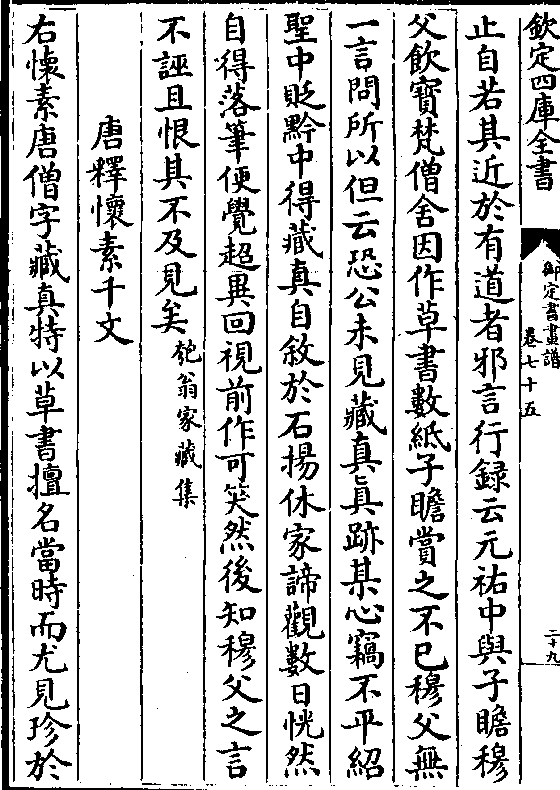 欽定四庫全書
御定書畫譜
卷七十五
二十九
止自若其近於有道者邪言行録云元祐中與子瞻穆
父飲寶梵僧舍因作草書數紙子瞻賞之不已穆父無
一言問所以但云恐公未見藏真真跡某心竊不平紹
聖中貶黔中得藏真自敘於石揚休家諦觀數日恍然
自得落筆便覺超異回視前作可笑然後知穆父之言
不誣且恨其不及見矣匏翁家藏集
唐釋懷素千文
右懷素唐僧字藏真特以草書擅名當時而尤見珍於